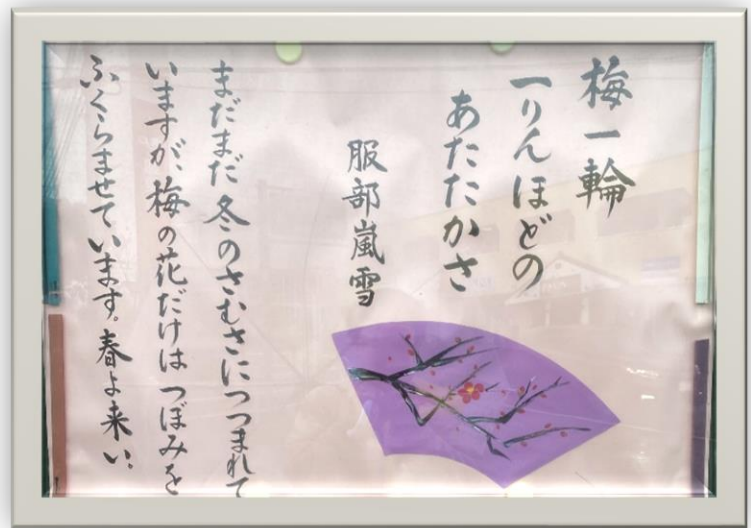 梅一輪
一りんほどの
あたたかさ
服部嵐雪
まだまだ冬のさむさにつつまれて
いますが、梅の花だけはつぼみを
ふくらませています。春よ来い。